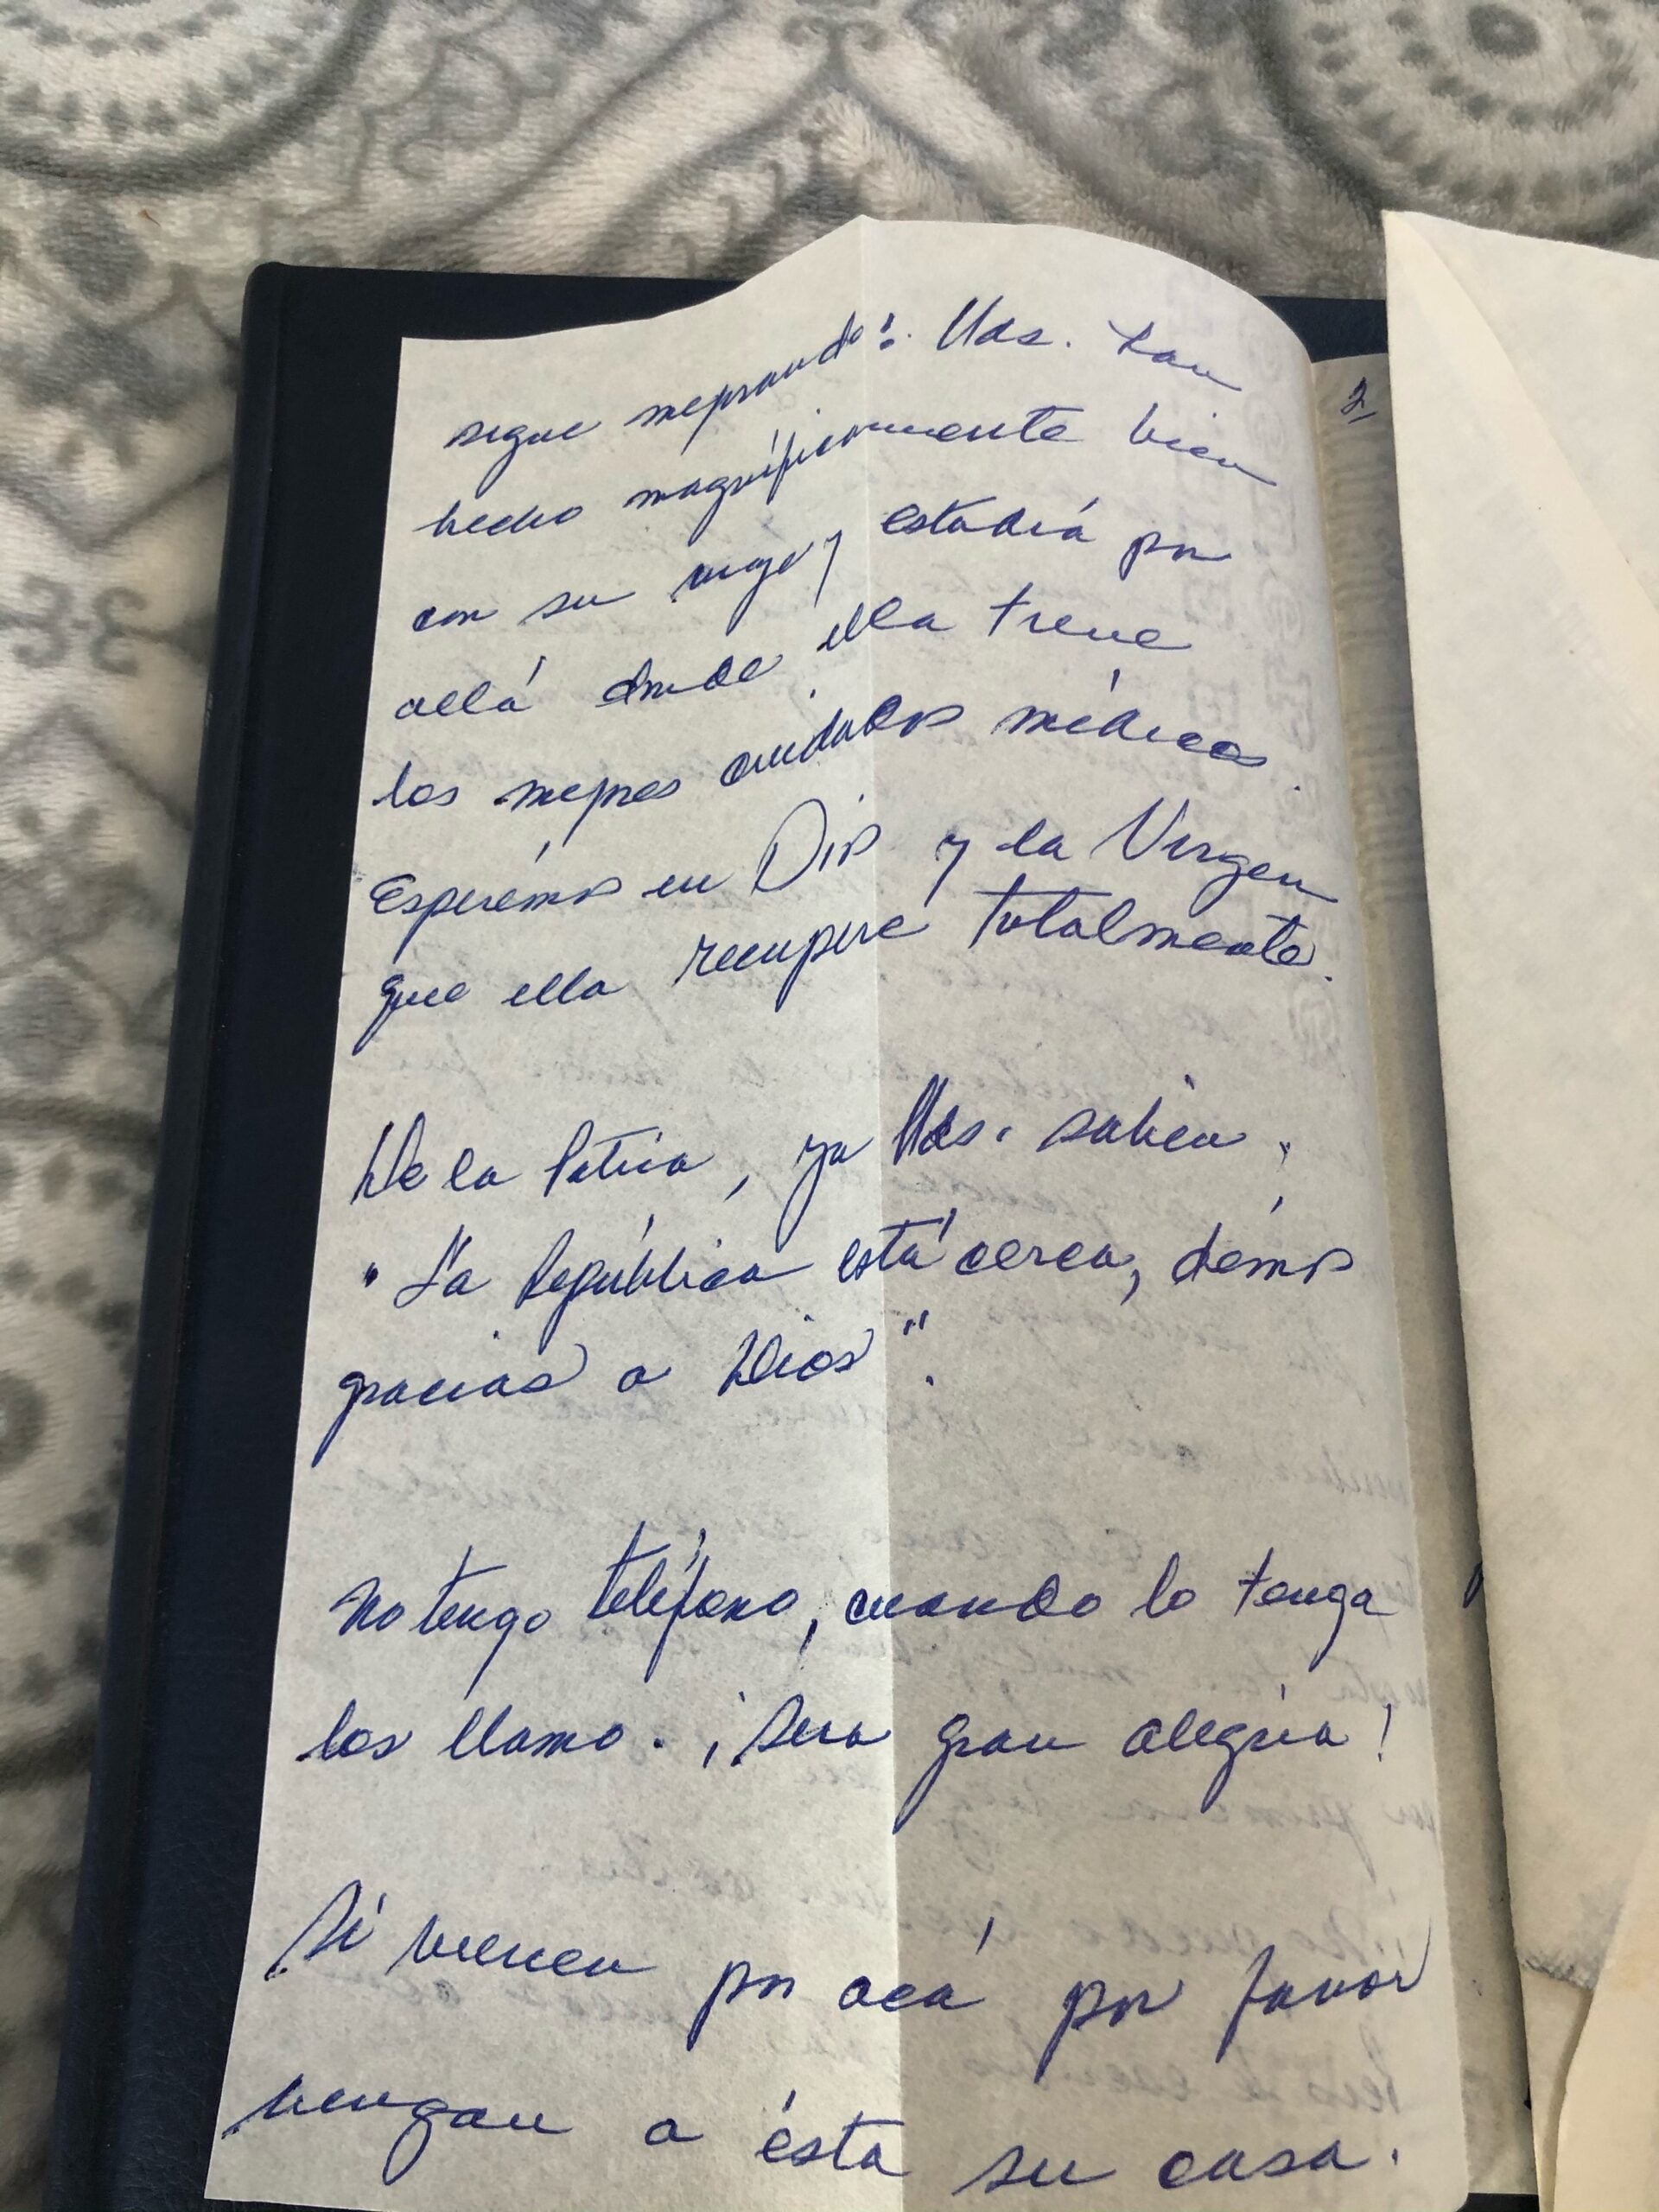 2
sigue mejorando! Uds. han
hecho magníficamente bien
con su viaje y estadía por
allá donde ella tiene
los mejores cuidados médicos.
Esperémos en Dios y la Virgen
que ella recupere totalmente.
De la Patria, ya Uds. saben,
"La República está cerca, démos
gracias a Dios".
No tengo teléfono, cuando lo tenga
los llamo. ¡Sera gran alegría!
Si vienen por acá por favor
vengan a ésta su casa.